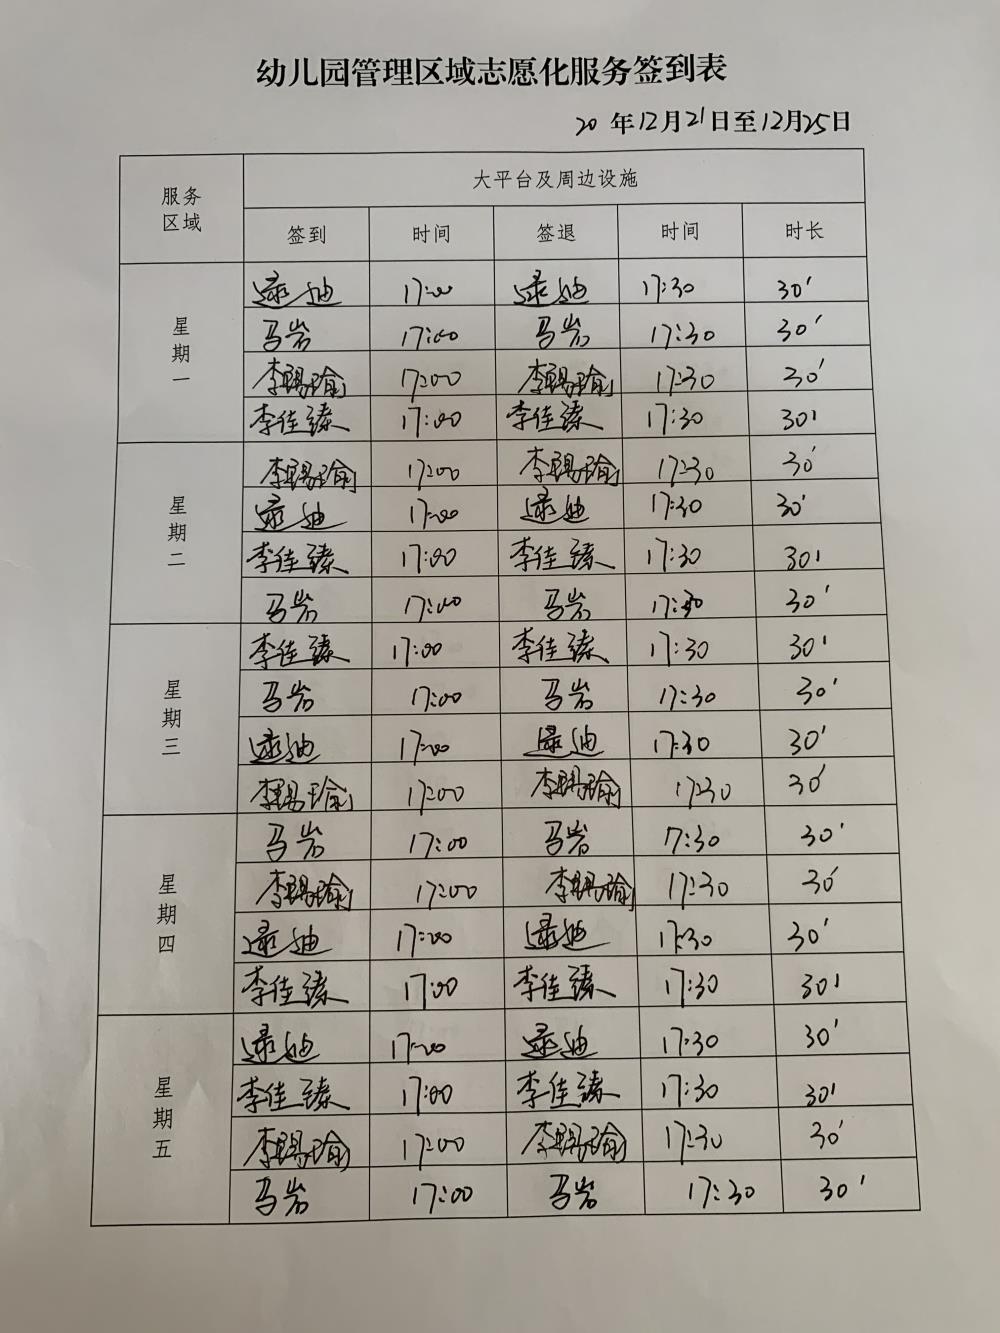 幼儿园管理区域志愿化服务签到表
20 年12月21日至12月25日
服务区域 大平台及周边设施
签到 时间 签退 时间 时长
星期一
逯迪 17:00 逯迪 17:30 30'
马岩 17:00 马岩 17:30 30'
17:00 17:30 30'
李佳臻 17:00 李佳臻 17:30 30'
星期二
17:00 17:30 30'
逯迪 17:00 逯迪 17:30 30'
李佳臻 17:00 李佳臻 17:30 30'
马岩 17:00 马岩 17:30 30'
星期三
李佳臻 17:00 李佳臻 17:30 30'
马岩 17:00 马岩 17:30 30'
逯迪 17:00 逯迪 17:30 30'
17:00 17:30 30'
星期四
马岩 17:00 马岩 17:30 30'
17:00 17:30 30'
逯迪 17:00 逯迪 17:30 30'
李佳臻 17:00 李佳臻 17:30 30'
星期五
逯迪 17:00 逯迪 17:30 30'
李佳臻 17:00 李佳臻 17:30 30'
17:00 17:30 30'
马岩 17:00 马岩 17:30 30'